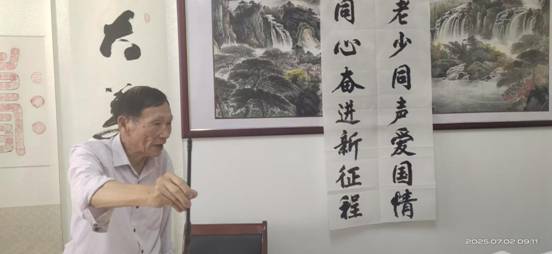 老少同声爱国情
同心奋进新征程
大
2025.07.02 09:11